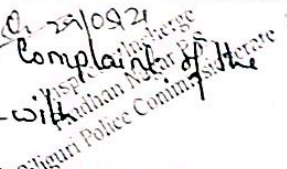 29/05/21
Complaint of the
with
Inspector-in-Charge
Pradhan Nagar P.S.
Siliguri Police Commissionerate